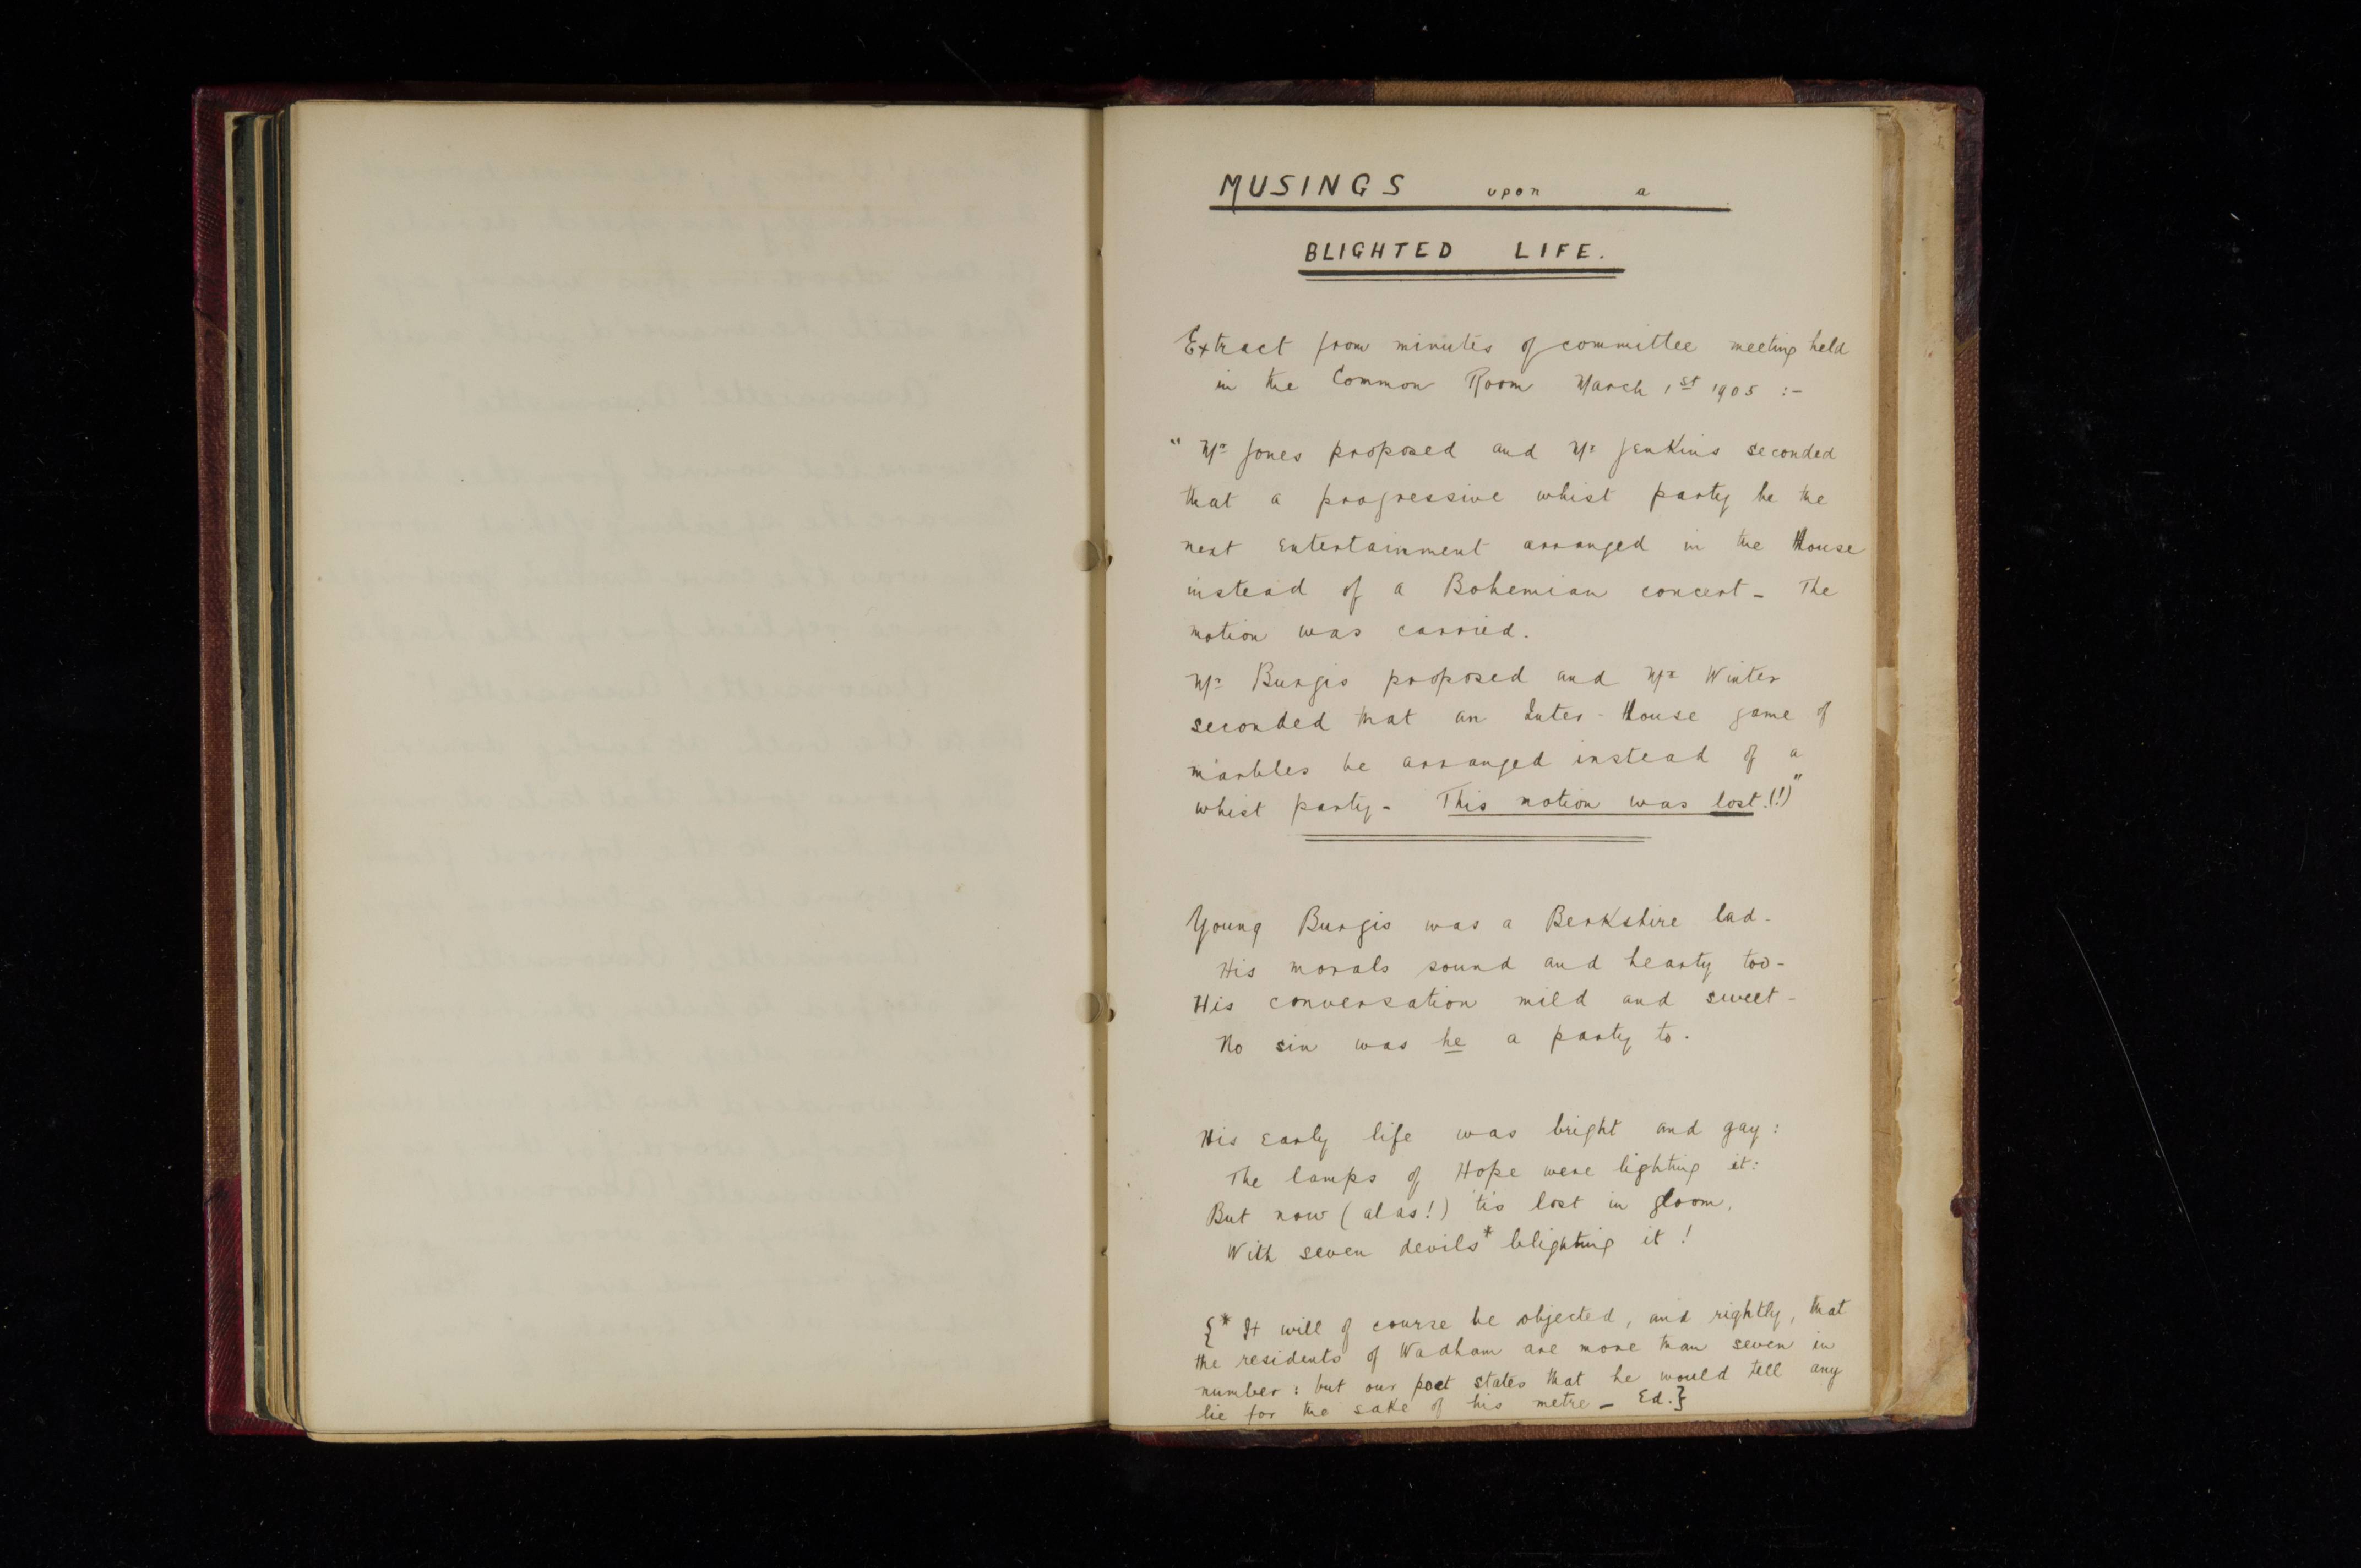 MUSINGS upon a
BLIGHTED LIFE.
Extract from minutes of committee meeting held
in the Common Room March 1st 1905 :-
" Mr Jones proposed and Mr Jenkins seconded
that a progressive whist party be the
next entertainment arranged in the House
instead of a Bohemian concert - The
motion was carried.
Mr Burgis proposed and Mr Winter
seconded that an Inter-House game of
marbles be arranged instead of a
whist party - This motion was lost.(!)"
Young Burgis was a Berkshire lad -
His morals sound and hearty too -
His conversation mild and sweet -
No sin was he a party to.
His early life was bright and gay:
The lamps of Hope were lighting it:
But now (alas!) 'tis lost in gloom,
With seven devils* blighting it!
{* It will of course be objected, and rightly, that
the residents of Wadham are more than seven in
number: but our poet states that he would tell any
lie for the sake of his metre - Ed.}